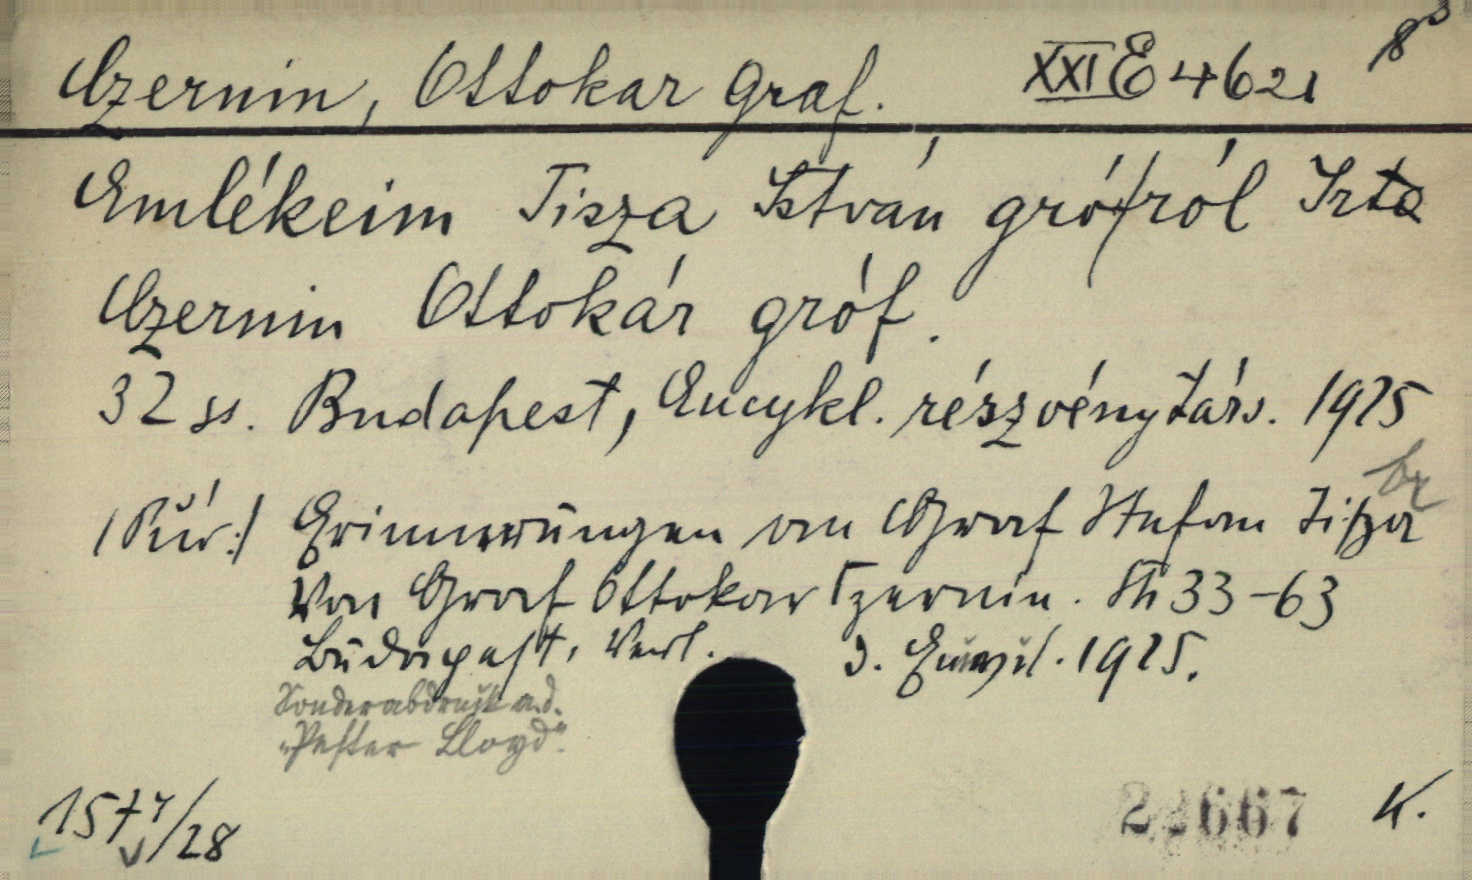 Czernin, Ottokar Graf. XXI E 4621 8°
Emlékeim Tisza István grófról Irta
Czernin Ottokár gróf.
32 ss. Budapest, Encykl. részvénytárs. 1925
br
Erinnerungen an Graf Stefan Tisza
Von Graf Ottokar Czernin. SS 33-63
Budapest, Verl. d. 1925.
Sonderabdruck a.d.
"Pester Lloyd".
/28 K.